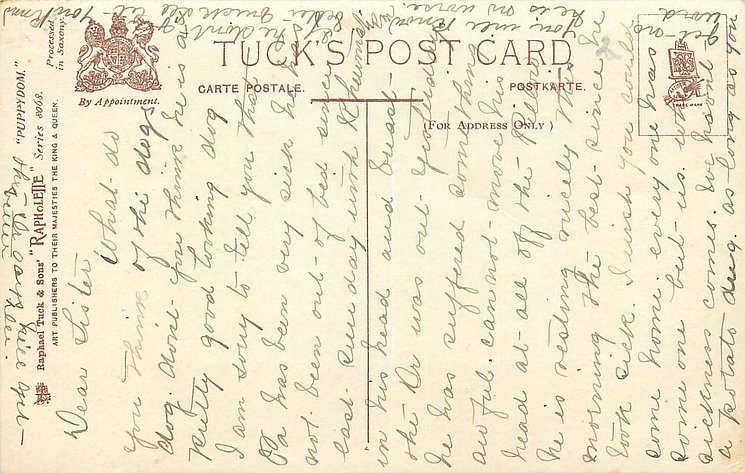 TUCK'S POST CARD
CARTE POSTALE.
POSTKARTE.
(FOR ADDRESS ONLY)
By Appointment.
Raphael Tuck & Sons' "RAPHOLETTE" Series 8068. "PUPPYDOM."
Processed in Saxony.
ART PUBLISHERS TO THEIR MAJESTIES THE KING & QUEEN.
TRADE MARK
Dear Sister
What do
you think of the dogs
dog. dont you think he is a
pretty good looking dog
I am sorry to tell you that
Pa has been very sick he has
not been out of bed since
last Sunday with Rheumatism
in his head and breast
the Dr was out yesterday
he was suffered something
awful. can not move his
head at all off the pillow
he is resting nicely this
morning the best since he
took sick. I wish you could
come home every one has
some one but us when
sickness comes. We haven't
a potato dug. as long as you
get no
word
he is no worse.
you will know
he dont get
better quick